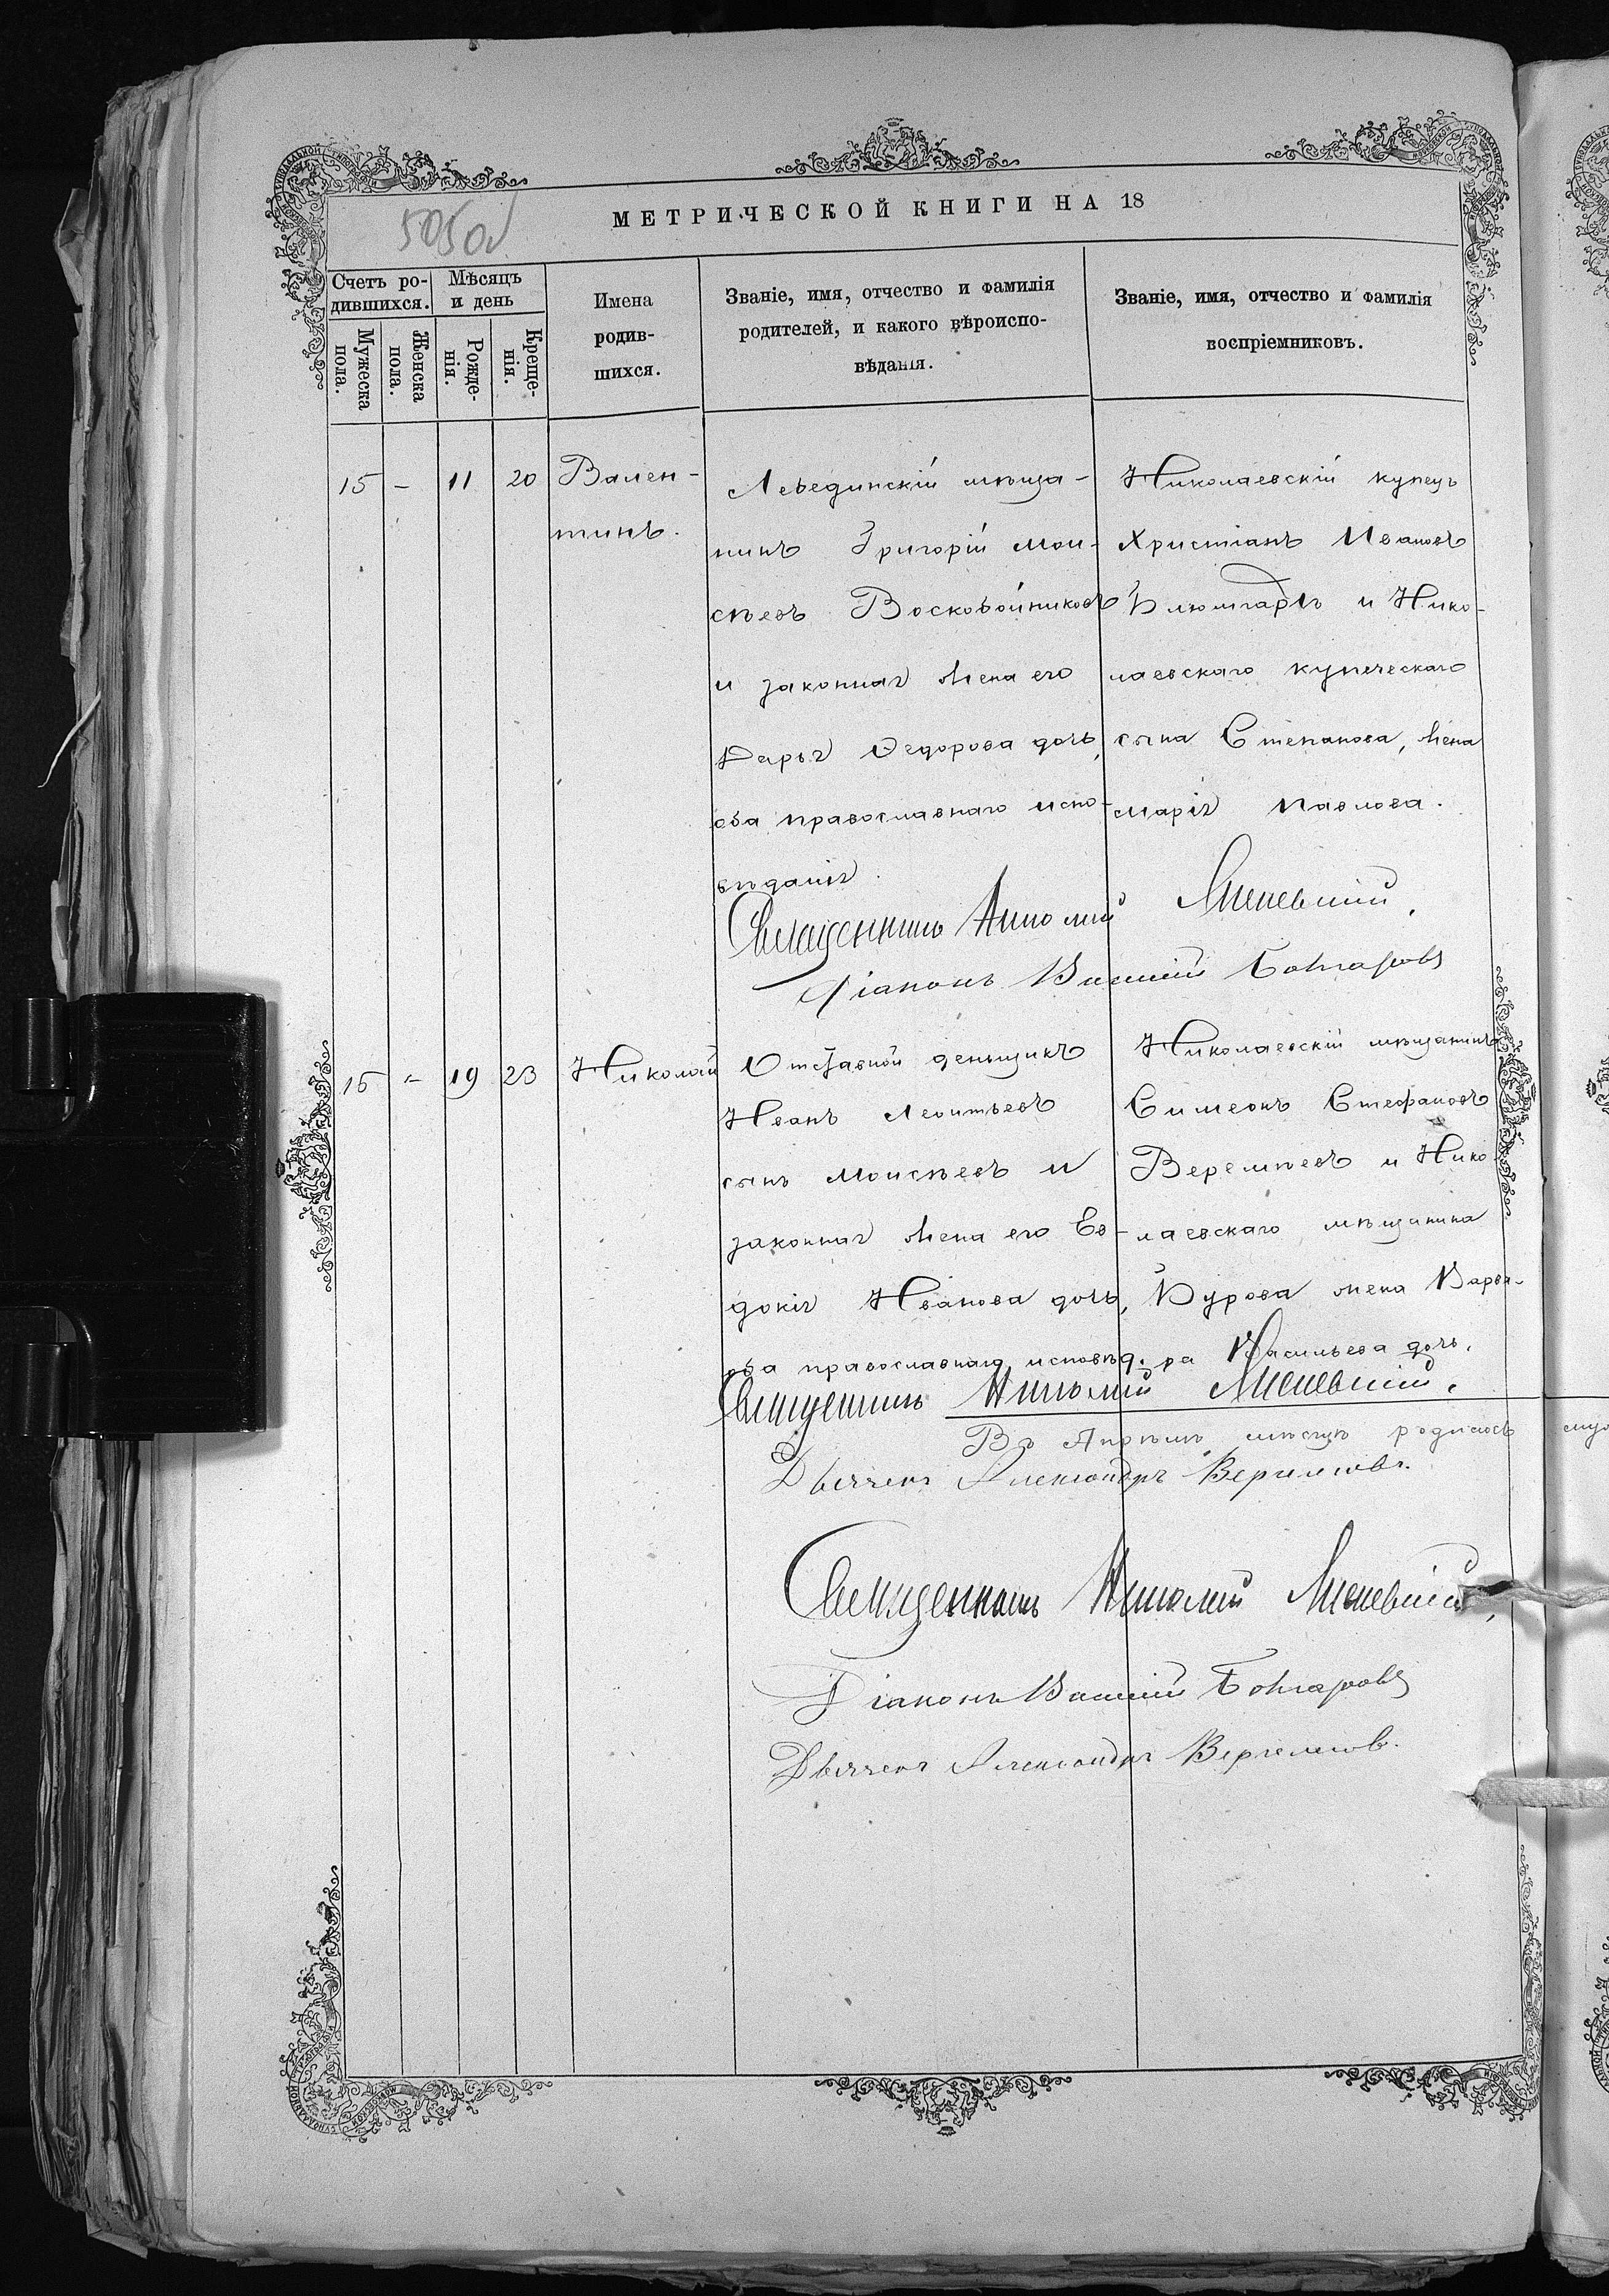 505об
МЕТРИЧЕСКОЙ КНИГИ НА 18
Счетъ ро-
дившихся.
Мужеска пола.
Женска пола.
Мѣсяцъ
и день
Рожде-
нія.
Креще-
нія.
Имена
родив-
шихся.
Званіе, имя, отчество и фамилія
родителей, и какого вѣроиспо-
вѣданія.
Званіе, имя, отчество и фамилія
воспріемниковъ.
15 – 11 20
Вален-
тинъ.
Лебединскій мѣща-
нинъ Григорій Мои-
сѣевъ Воскобойниковъ
и законная жена его
Дарья Ѳедорова дочь,
оба православнаго испо-
вѣданія.
Николаевскій купецъ
Христіанъ Ивановъ
Блюмгардъ и Нико-
лаевскаго купеческаго
сына Степанова, жена
Марія Павлова.
Священникъ Анатолій
Діаконъ Василій Бонгаровъ
16 – 19 23
Николай
Отставной деньщикъ
Иванъ Леонтьевъ
сынъ Моисѣевъ и
законная жена его Ев-
докія Иванова дочь,
оба православнаго исповѣд.
Николаевскій мѣщанинъ
Симеонъ Стефановъ
Веремѣевъ и Нико-
лаевскаго мѣщанина
Бурова жена Варва-
ра Васильева дочь.
Священникъ Анатолій
Въ Апрѣлѣ мѣсяцѣ родилось
Дьячекъ Александръ
Священникъ Анатолій
Діаконъ Василій Бонгаровъ
Дьячекъ Александръ